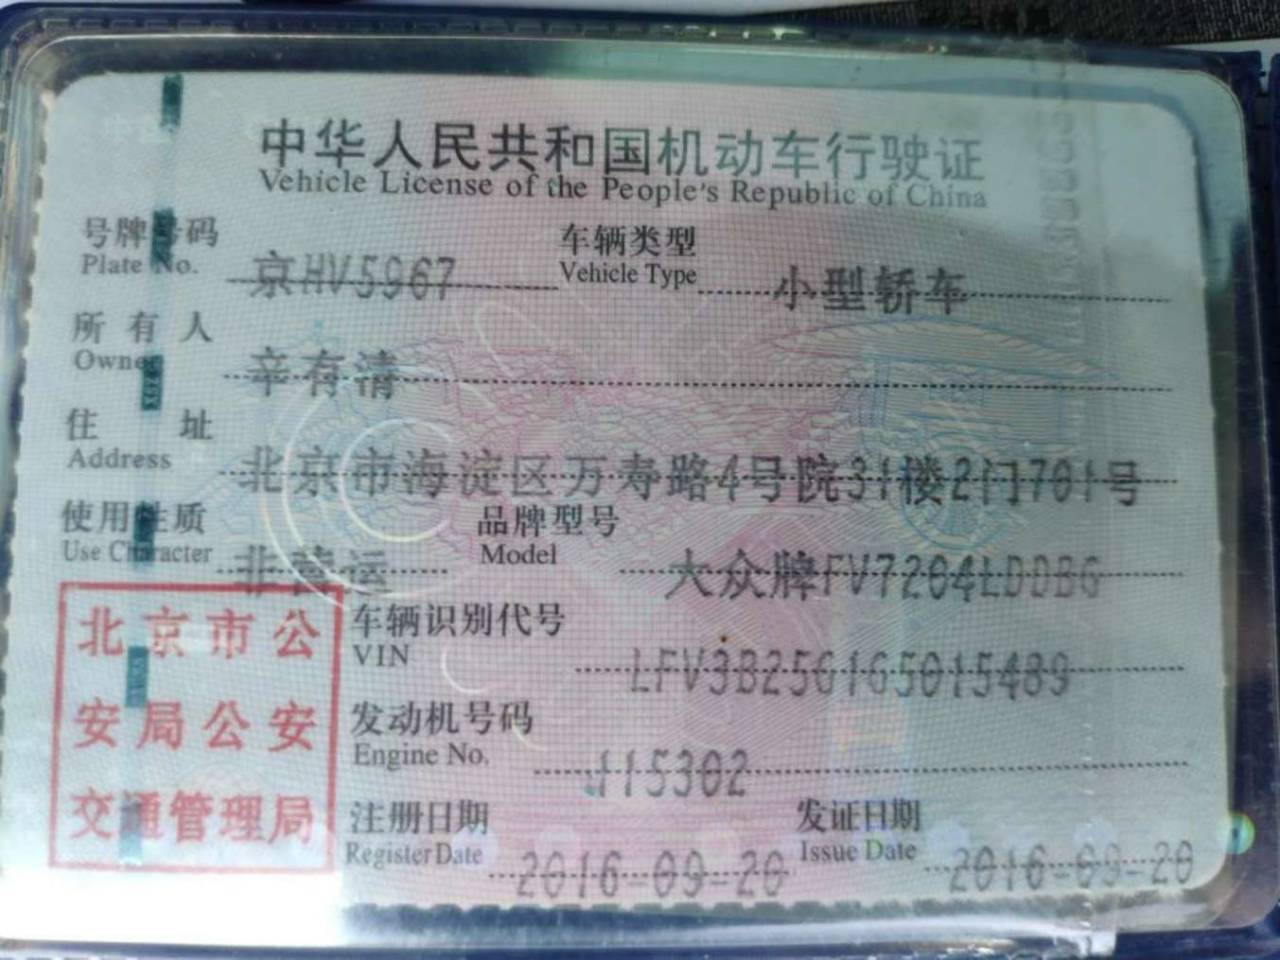 中华人民共和国机动车行驶证
Vehicle License of the People's Republic of China
号牌号码 京HV5967 车辆类型 小型轿车
Plate No. Vehicle Type
所有人 辛有清
Owner
住址 北京市海淀区万寿路4号院31楼2门701号
Address
使用性质 非营运 品牌型号 大众牌FV7204LDDBG
Use Character Model
北京市公
安局公安
交通管理局
车辆识别代号 LFV3B25G1G5015489
VIN
发动机号码
Engine No. J15302
注册日期 2016-09-20 发证日期 2016-09-20
Register Date Issue Date